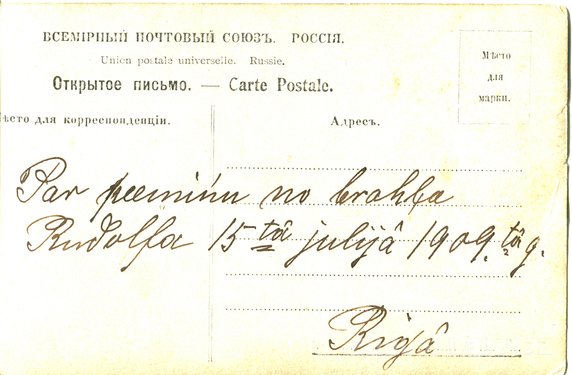 ВСЕМІРНЫЙ ПОЧТОВЫЙ СОЮЗЪ. РОССІЯ.
Union postale universelle. Russie.
Открытое письмо. — Carte Postale.
Мѣсто
для
марки.
ѣсто для корреспонденціи.
Адресъ.
Par peeminu no brahļa
Rudolfa 15 tâ julijâ 1909. tâ g.
Rigâ